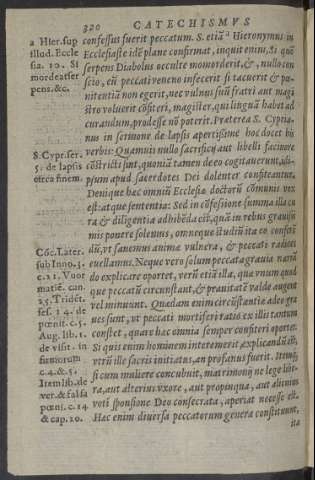 320 CATECHISMVS
a Hier. sup
illud. Eccle
sia. 10. Si
mordeat ser
pens. &c.
S. Cypr. ser.
5. de lapsis
circa finem.
Cōc. Later.
sub Inno. 3.
c. 21. Vuor
matiē. can.
25. Tridēt.
ses. 14. de
pœnit. c. 5.
Aug. lib. 1.
de visit. in
firmorum
c. 4. & 5.
Item lib. de
ver. & falsa
pœni. c. 14
& cap. 10.
confessus fuerit peccatum. S. etiā a Hieronymus in
Ecclesiaste idē plane confirmat, inquit enim, Si quē
serpens Diabolus occulte momorderit, &, nullo con
scio, eū peccati veneno infecerit si tacuerit & pœ
nitentiā non egerit, nec vulnus suū fratri aut magi
stro voluerit cōfiteri, magister, qui linguā habet ad
curandum, prodesse nō poterit. Præterea S. Cypria-
nus in sermone de lapsis apertissime hoc docet his
verbis: Quamuis nullo sacrificij aut libelli facinore
cōstricti sint, quoniā tamen de eo cogitauerunt, id i-
psum apud sacerdotes Dei dolenter confiteantur.
Denique hæc omniū Ecclesiæ doctorū cōmunis vox
est: atque sententia: Sed in cōfessione summa illa cu
ra & diligentia adhibēda est, quā in rebus grauissi
mis ponere solemus, omneque studiū ita eo conferē
dū, vt sanemus animæ vulnera, & peccati radices
euellamus. Neque vero solum peccata grauia narrā
do explicare oportet, verū etiā illa, quæ vnum quod
que peccatū circunstant, & prauitatē valde augent
vel minuunt. Quædam enim circūstantiæ adeo gra
ues sunt, vt peccati mortiferi ratio ex illis tantum
constet, quare hæc omnia semper confiteri oportet.
Si quis enim hominem interemerit, explicandū est,
vtrū ille sacris initiatus, an profanus fuerit. Itemq;
si cum muliere concubuit, matrimonij ne lege libe-
ra, aut alterius vxore, aut propinqua, aut alicuius
voti sponsione Deo consecrata, aperiat necesse est.
Hæc enim diuersa peccatorum genera constituunt,
ita